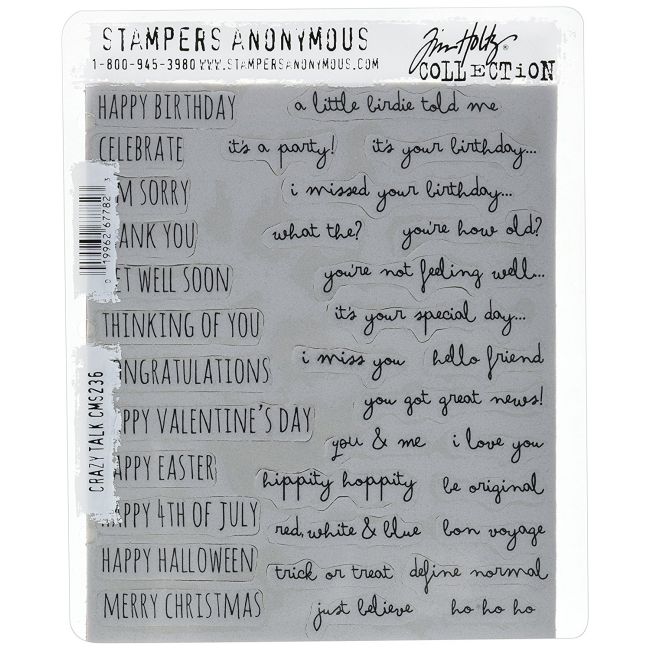 STAMPERS ANONYMOUS
1-800-945-3980 WWW.STAMPERSANONYMOUS.COM
Tim Holtz
COLLECTION
HAPPY BIRTHDAY
a little birdie told me
CELEBRATE
it's a party!
it's your birthday...
I'M SORRY
i missed your birthday...
ANK YOU
what the?
you're how old?
ET WELL SOON
you're not feeling well...
THINKING OF YOU
it's your special day...
NGRATULATIONS
i miss you
hello friend
PPY VALENTINE'S DAY
you got great news!
you & me
i love you
APPY EASTER
hippity hoppity
be original
HAPPY 4TH OF JULY
red, white & blue
bon voyage
HAPPY HALLOWEEN
trick or treat
define normal
MERRY CHRISTMAS
just believe
ho ho ho
0 19962 67782 3
CRAZY TALK CMS236